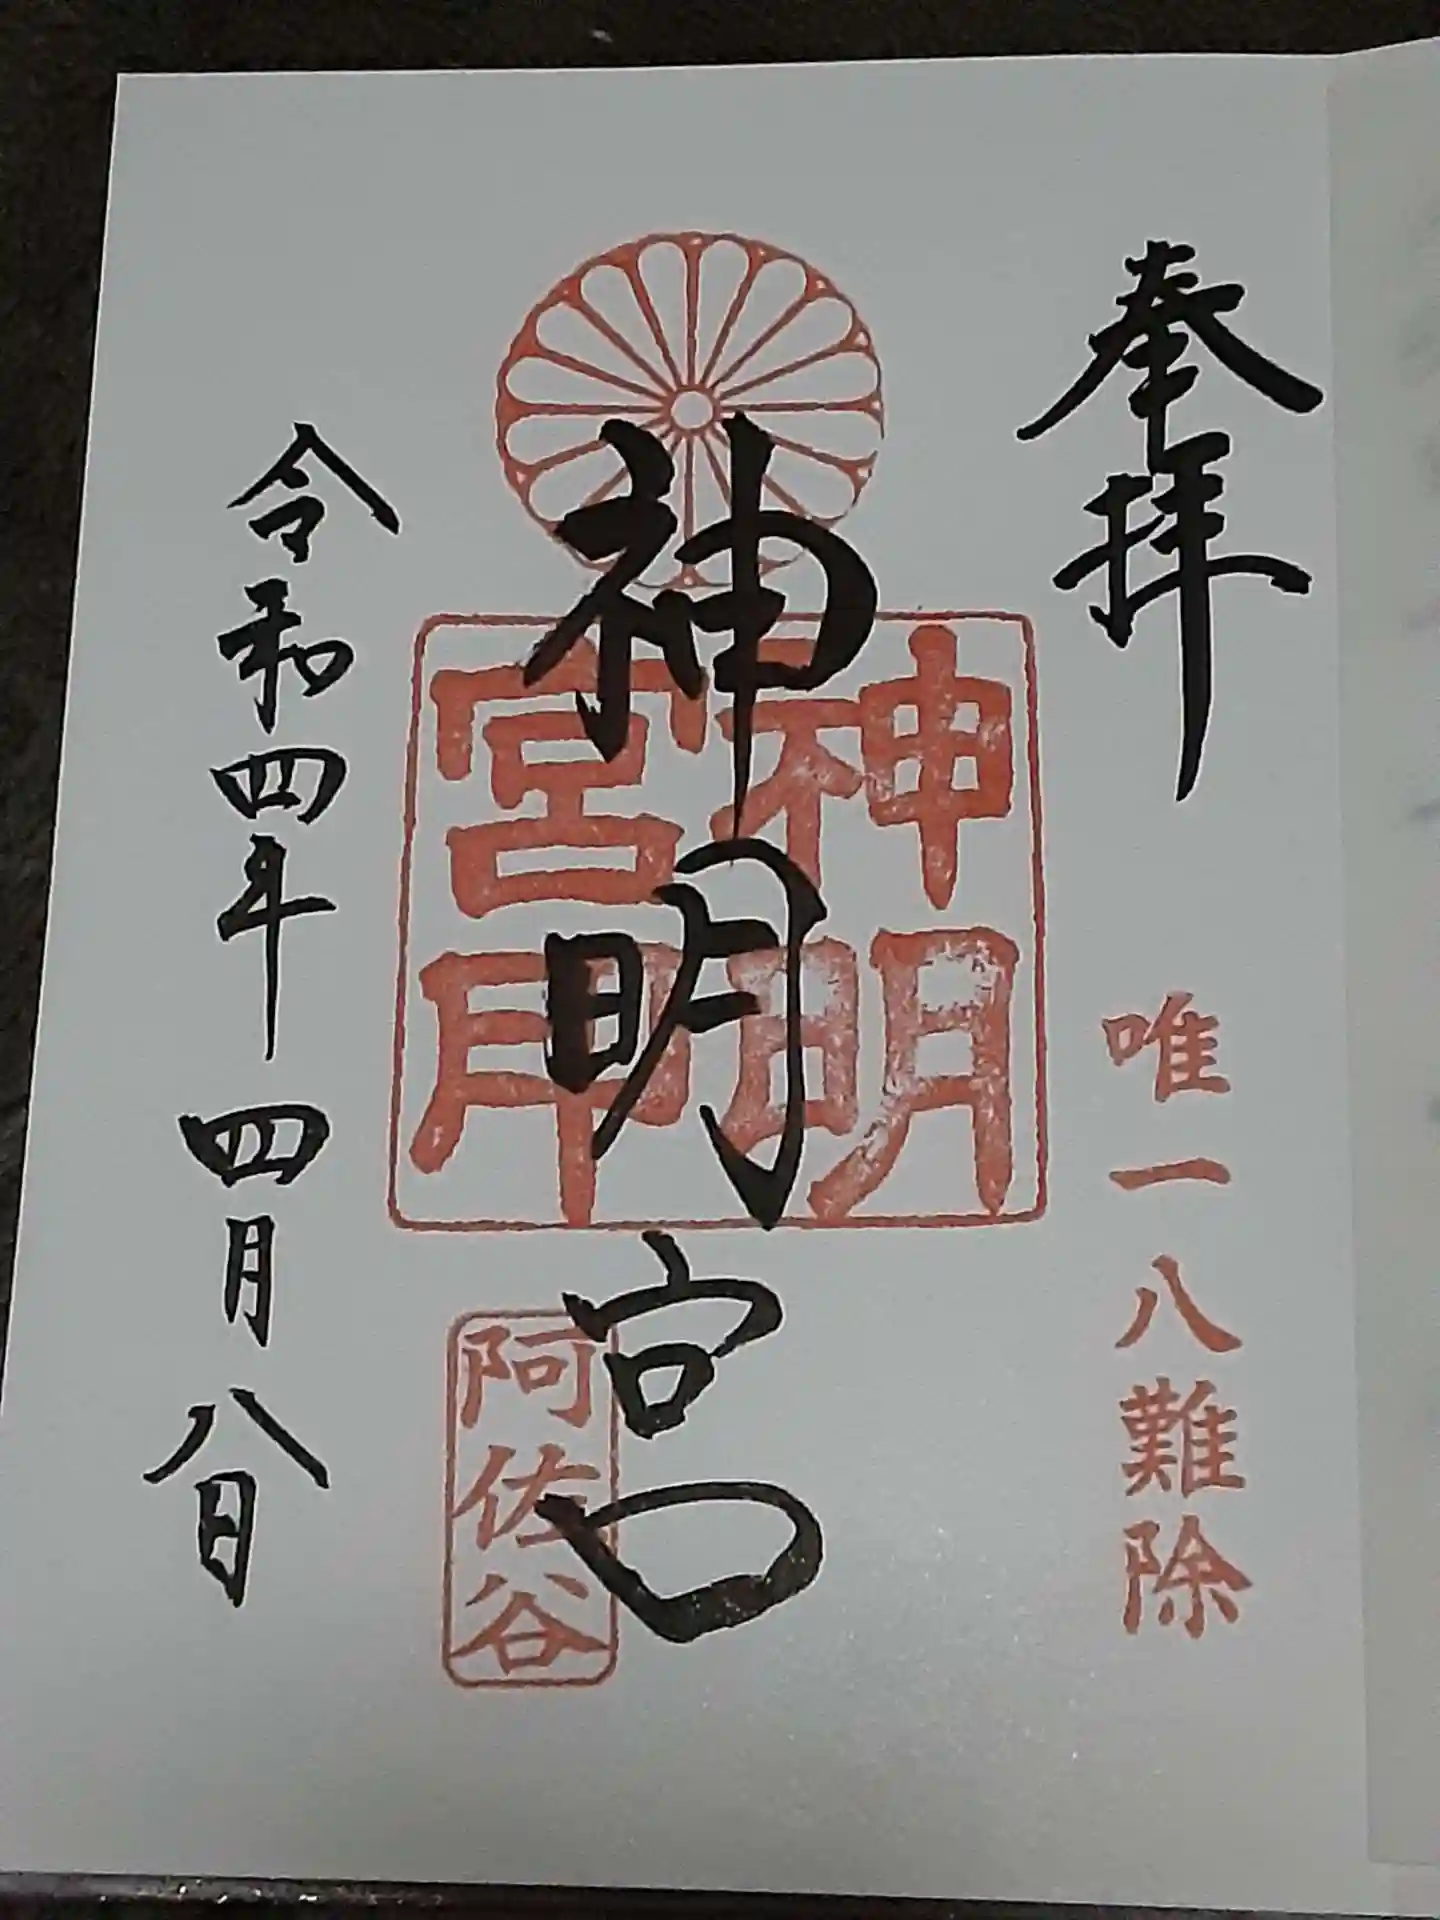 奉拝
唯一八難除
神明宮
神明
宮印
阿佐谷
令和四年四月八日